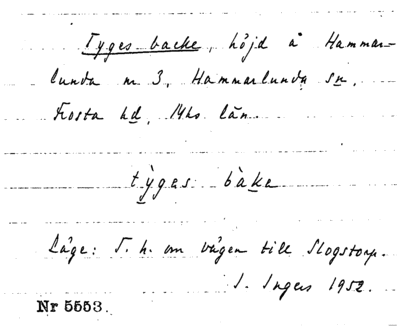 Tyges backe, höjd å Hammar-
lunda nr 3, Hammarlunda sn,
Frosta hd, Mhs län.
tỳges bàke
Läge: T. h. om vägen till Slogstorp.
I. Ingers 1952.
Nr 5553.